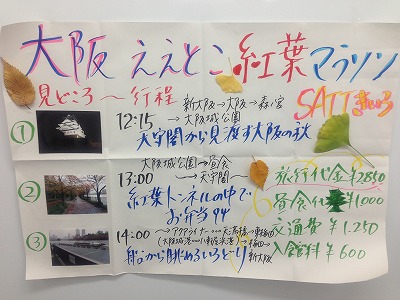 大阪 ええとこ 紅葉 マラソン
見どころ ～ 行程
新大阪→大阪→森ノ宮
SATT
① 12:15 →大阪城公園
天守閣から見渡す大阪の秋
大阪城公園→昼食
② 13:00 →天守閣～
紅葉トンネルの中で
お弁当
旅行代金 ¥2850
昼食代 ¥1000
交通費 ¥1,250
入館料 ¥600
③ 14:00 ～アクアライナー
船から眺めるいろどり
新大阪